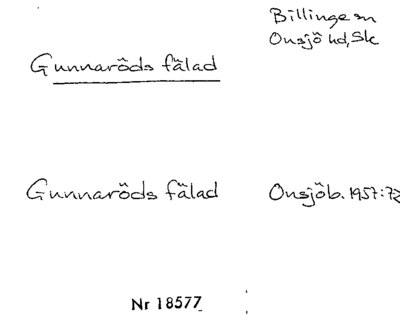 Billinge sn
Onsjö hd, Sk
Gunnaröds fälad
Gunnaröds fälad Onsjöb. 1957:72
Nr 18577